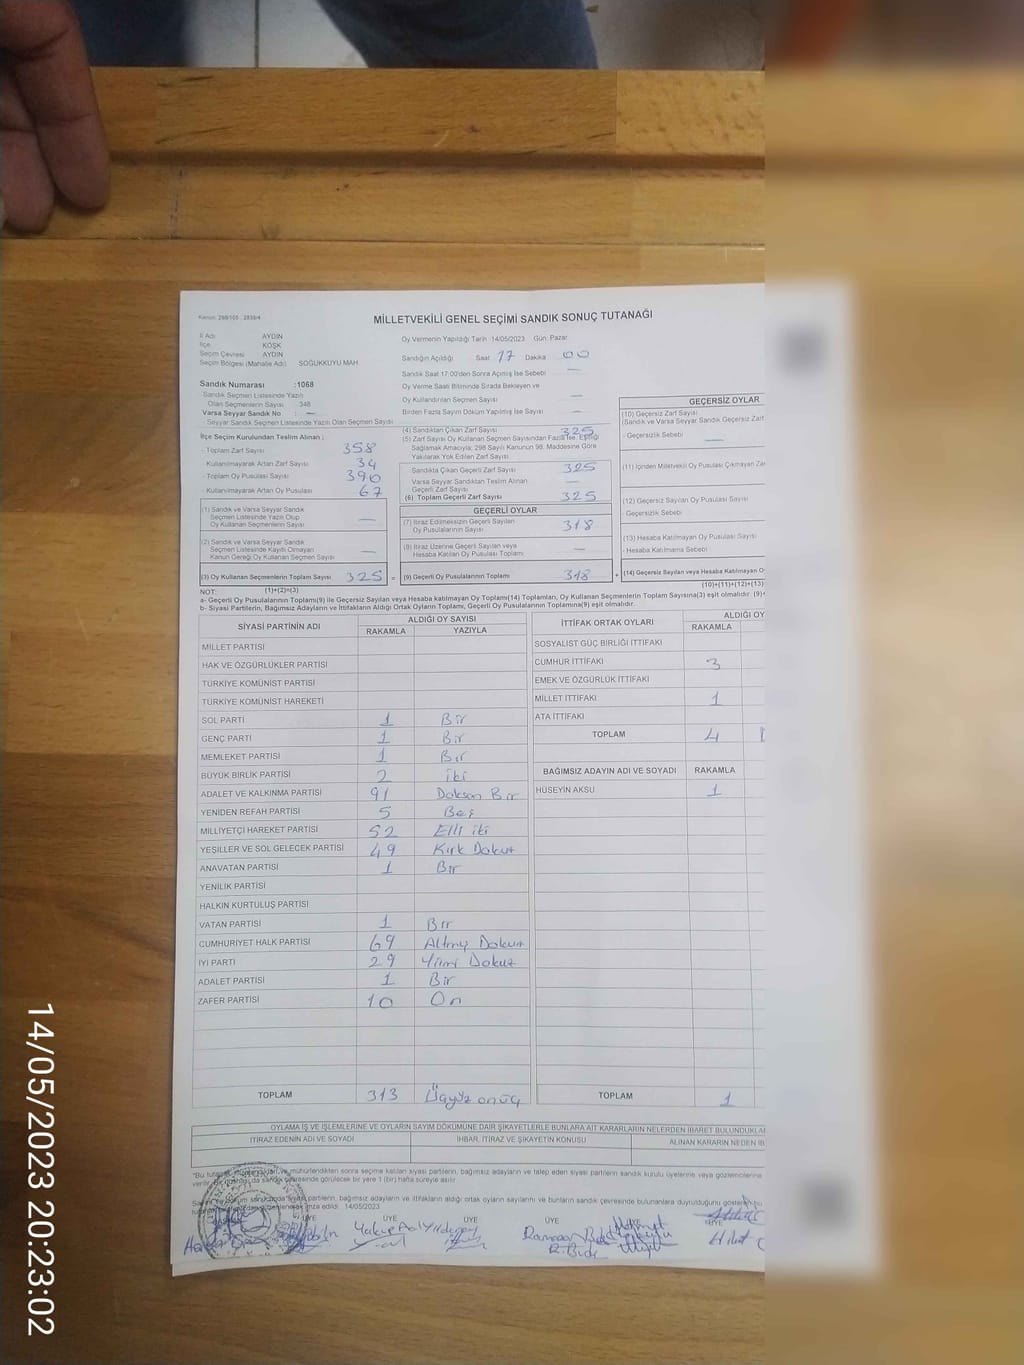 Kanun: 298/105 - 2839/4
MİLLETVEKİLİ GENEL SEÇİMİ SANDIK SONUÇ TUTANAĞI
İl Adı AYDIN
İlçe KÖŞK
Seçim Çevresi AYDIN
Seçim Bölgesi (Mahalle Adı) SOĞUKKUYU MAH
Sandık Numarası :1068
Sandık Seçmen Listesinde Yazılı
Olan Seçmenlerin Sayısı 348
Varsa Seyyar Sandık No : —
Seyyar Sandık Seçmen Listesinde Yazılı Olan Seçmen Sayısı
İlçe Seçim Kurulundan Teslim Alınan ;
- Toplam Zarf Sayısı 358
- Kullanılmayarak Artan Zarf Sayısı 34
- Toplam Oy Pusulası Sayısı 390
- Kullanılmayarak Artan Oy Pusulası 67
(1) Sandık ve Varsa Seyyar Sandık
Seçmen Listesinde Yazılı Olup
Oy Kullanan Seçmenlerin Sayısı —
(2) Sandık ve Varsa Seyyar Sandık
Seçmen Listesinde Kayıtlı Olmayan
Kanun Gereği Oy Kullanan Seçmen Sayısı —
(3) Oy Kullanan Seçmenlerin Toplam Sayısı 325 =
(1)+(2)=(3)
Oy Vermenin Yapıldığı Tarih 14/05/2023 Gün: Pazar
Sandığın Açıldığı Saat 17 Dakika 00
Sandık Saat 17:00'den Sonra Açılmış İse Sebebi —
Oy Verme Saati Bitiminde Sırada Bekleyen ve
Oy Kullandırılan Seçmen Sayısı —
Birden Fazla Sayım Dökümü Yapılmış İse Sayısı —
(4) Sandıktan Çıkan Zarf Sayısı 325
(5) Zarf Sayısı Oy Kullanan Seçmen Sayısından Fazla ise, Eşitliği
Sağlamak Amacıyla; 298 Sayılı Kanunun 98. Maddesine Göre
Yakılarak Yok Edilen Zarf Sayısı
Sandıkta Çıkan Geçerli Zarf Sayısı 325
Varsa Seyyar Sandıktan Teslim Alınan
Geçerli Zarf Sayısı —
(6) Toplam Geçerli Zarf Sayısı 325
GEÇERLİ OYLAR
(7) İtiraz Edilmeksizin Geçerli Sayılan
Oy Pusulalarının Sayısı 318
(8) İtiraz Üzerine Geçerli Sayılan veya
Hesaba Katılan Oy Pusulası Toplamı —
(9) Geçerli Oy Pusulalarının Toplamı 318 +
GEÇERSİZ OYLAR
(10) Geçersiz Zarf Sayısı
(Sandık ve Varsa Seyyar Sandık Geçersiz Zarf
- Geçersizlik Sebebi —
(11) İçinden Milletvekili Oy Pusulası Çıkmayan Zar
(12) Geçersiz Sayılan Oy Pusulası Sayısı
- Geçersizlik Sebebi
(13) Hesaba Katılmayan Oy Pusulası Sayısı
- Hesaba Katılmama Sebebi
(14) Geçersiz Sayılan veya Hesaba Katılmayan O
(10)+(11)+(12)+(13)
NOT:
a- Geçerli Oy Pusulalarının Toplamı(9) ile Geçersiz Sayılan veya Hesaba Katılmayan Oy Toplamı(14) Toplamları, Oy Kullanan Seçmenlerin Toplam Sayısına(3) eşit olmalıdır. (9)+
b- Siyasi Partilerin, Bağımsız Adayların ve İttifakların Aldığı Ortak Oyların Toplamı, Geçerli Oy Pusulalarının Toplamına(9) eşit olmalıdır.
SİYASİ PARTİNİN ADI ALDIĞI OY SAYISI
RAKAMLA YAZIYLA
MİLLET PARTİSİ
HAK VE ÖZGÜRLÜKLER PARTİSİ
TÜRKİYE KOMÜNİST PARTİSİ
TÜRKİYE KOMÜNİST HAREKETİ
SOL PARTİ 1 Bir
GENÇ PARTİ 1 Bir
MEMLEKET PARTİSİ 1 Bir
BÜYÜK BİRLİK PARTİSİ 2 iki
ADALET VE KALKINMA PARTİSİ 91 Doksan Bir
YENİDEN REFAH PARTİSİ 5 Beş
MİLLİYETÇİ HAREKET PARTİSİ 52 Elli iki
YEŞİLLER VE SOL GELECEK PARTİSİ 49 Kırk Dokuz
ANAVATAN PARTİSİ 1 Bir
YENİLİK PARTİSİ
HALKIN KURTULUŞ PARTİSİ
VATAN PARTİSİ 1 Bir
CUMHURİYET HALK PARTİSİ 69 Altmış Dokuz
İYİ PARTİ 29 Yirmi Dokuz
ADALET PARTİSİ 1 Bir
ZAFER PARTİSİ 10 On
TOPLAM 313 Üçyüz onüç
İTTİFAK ORTAK OYLARI ALDIĞI OY
RAKAMLA
SOSYALİST GÜÇ BİRLİĞİ İTTİFAKI
CUMHUR İTTİFAKI 3
EMEK VE ÖZGÜRLÜK İTTİFAKI
MİLLET İTTİFAKI 1
ATA İTTİFAKI
TOPLAM 4
BAĞIMSIZ ADAYIN ADI VE SOYADI RAKAMLA
HÜSEYİN AKSU 1
TOPLAM 1
OYLAMA İŞ VE İŞLEMLERİNE VE OYLARIN SAYIM DÖKÜMÜNE DAİR ŞİKAYETLERLE BUNLARA AİT KARARLARIN NELERDEN İBARET BULUNDUKLA
İTİRAZ EDENİN ADI VE SOYADI İHBAR, İTİRAZ VE ŞİKAYETİN KONUSU ALINAN KARARIN NEDEN İB
mühürlendikten sonra seçime katılan siyasi partilerin, bağımsız adayların ve talep eden siyasi partilerin sandık kurulu üyelerine veya gözlemcilerine
sandık çevresinde görülecek bir yere 1 (bir) hafta süreyle asılır
siyasi partilerin, bağımsız adayların ve ittifakların aldığı ortak oyların sayılarını ve bunların sandık çevresinde bulunanlara duyrulduğunu gösteren
imza edildi. 14/05/2023
ÜYE ÜYE ÜYE ÜYE
14/05/2023 20:23:02